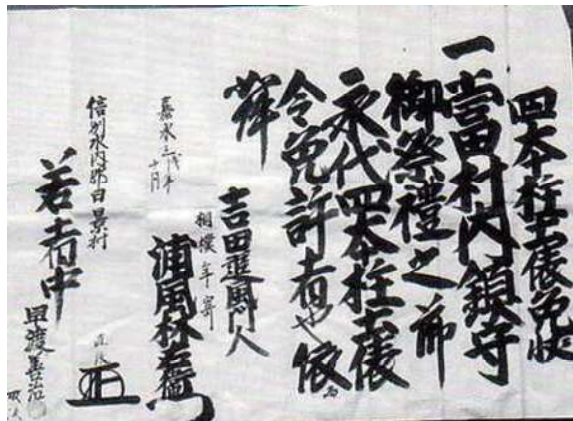 四本柱土俵免状
一當村内鎮守
御祭禮之節
永代四本柱土俵
令免許者也依而
吉田追風門人
相撲年寄
浦風林右衛門
嘉永三戌年
十月
信州水内郡日影村
若者中